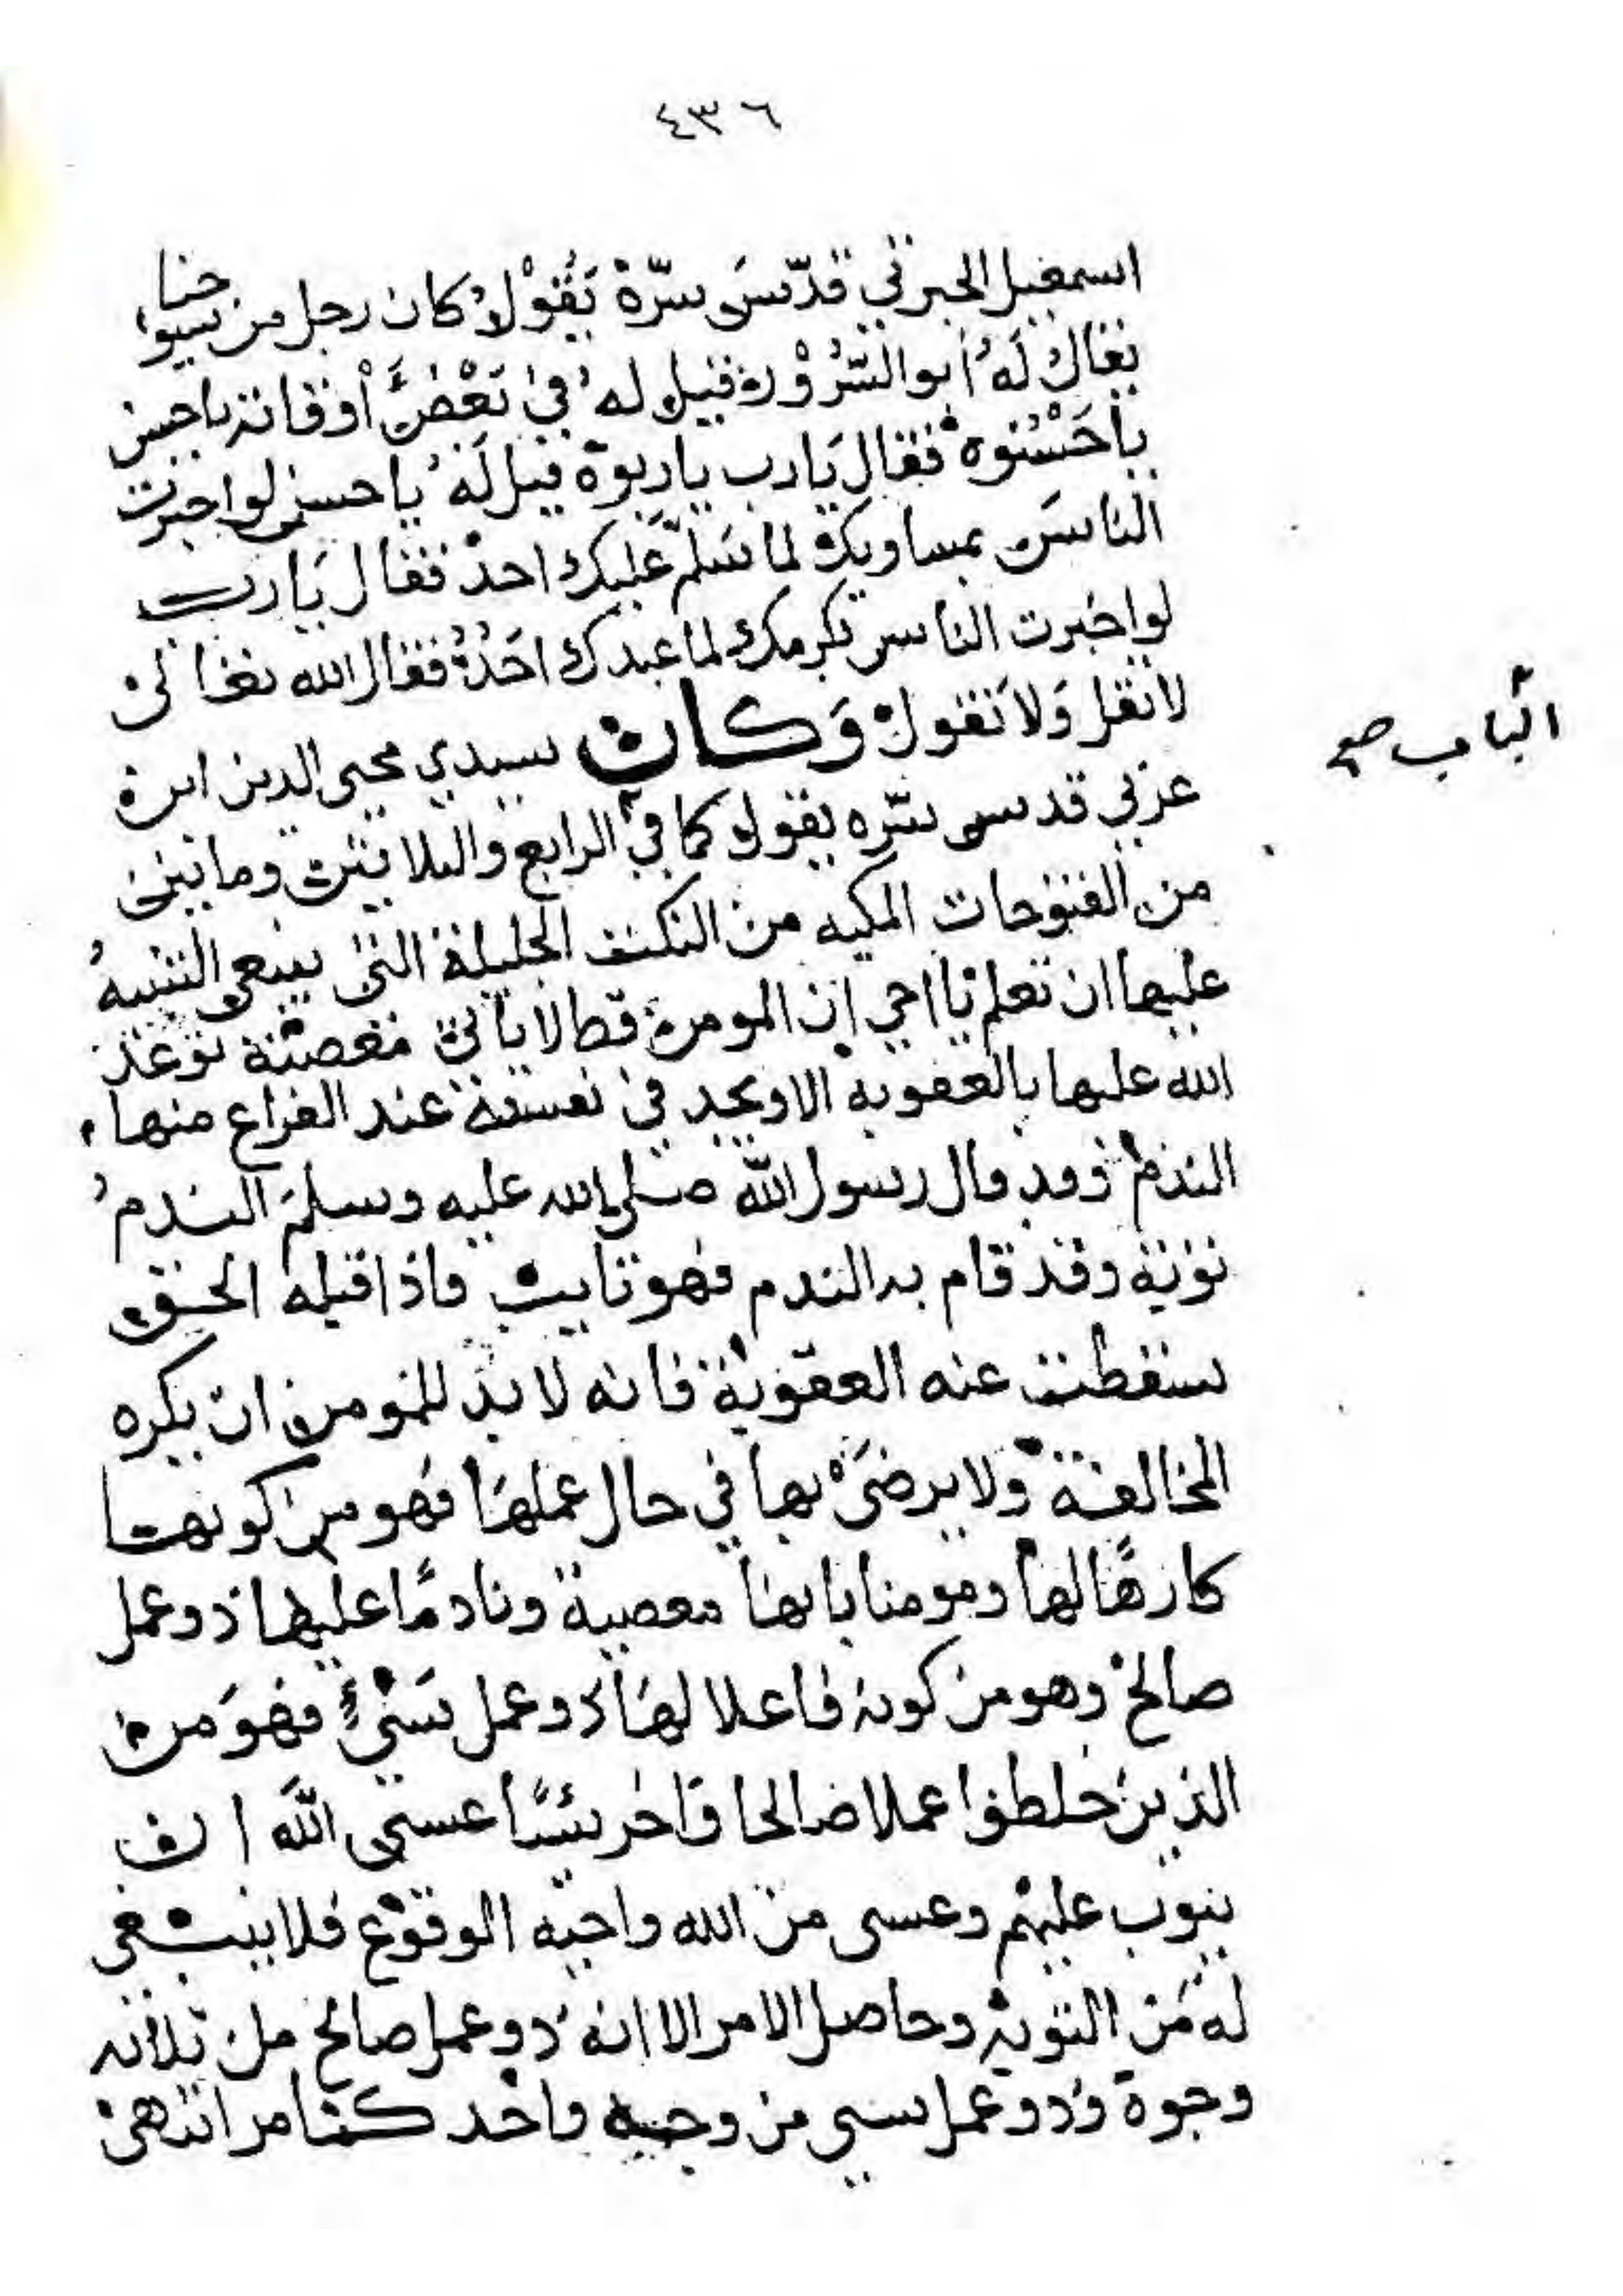 ٤٣٦
اسمعيل الجبرتي قدّس سرّهْ يَقُوْلُ كان رجل من شيوخنا
يقال لَهُ أبو السُّرُوْر فقيل له في بَعْضِ أوقاته يا حسن
يا حَسْنُوه فقال يَا رب يا ربوه قيل لَهُ يا حسن لو اخبرت
الناسَ بمساويك لما سَلّمَ عَليك احدْ فقال يَا رب
لو اخبرت الناس بكرمك لما عبدك احَدُ فقال الله تعالى
لا تقل وَلا نقول وَكان سيدي محيى الدين ابن
عربي قدس سرّه يقول كما في الرابع والثلاثين وماتين
الباب صح
من الفتوحات المكيه من النكت الجليلة التي ينبغي التنبيهُ
عليها ان تعلم يا اخي ان المومن قط لا ياتي معصية توعد
الله عليها بالعقوبه الا ويجد في نفسه عند الفراغ منها
الندم وقد قال رسول الله صلى الله عليه وسلم الندمُ
توبة وقد قام به الندم فهو تايب فاذا قبله الحق
سقطت عنه العقوبة فانه لا بدّ للمومن ان يكره
المخالفة ولا يرضَىْ بها في حال عملهَا فهو من كونها
كارهًا لها ومومنا بانها معصية ونادمًا عليها ذو عمل
صالح وهو من كونه فاعلا لهَا ذو عمل سَيّءٍ فهوَ من
الذين خلطوا عملا صالحا وَاخر سيّئًا عسى اللهَ ان
يتوب عليهم وعسى من الله واجبه الوقوع فلا ينبغي
له من التوبة وحاصل الامر الا انه ذو عمل صالح من ثلاثه
وجوه وذو عمل سي من وجه واحد كما مر انتهى